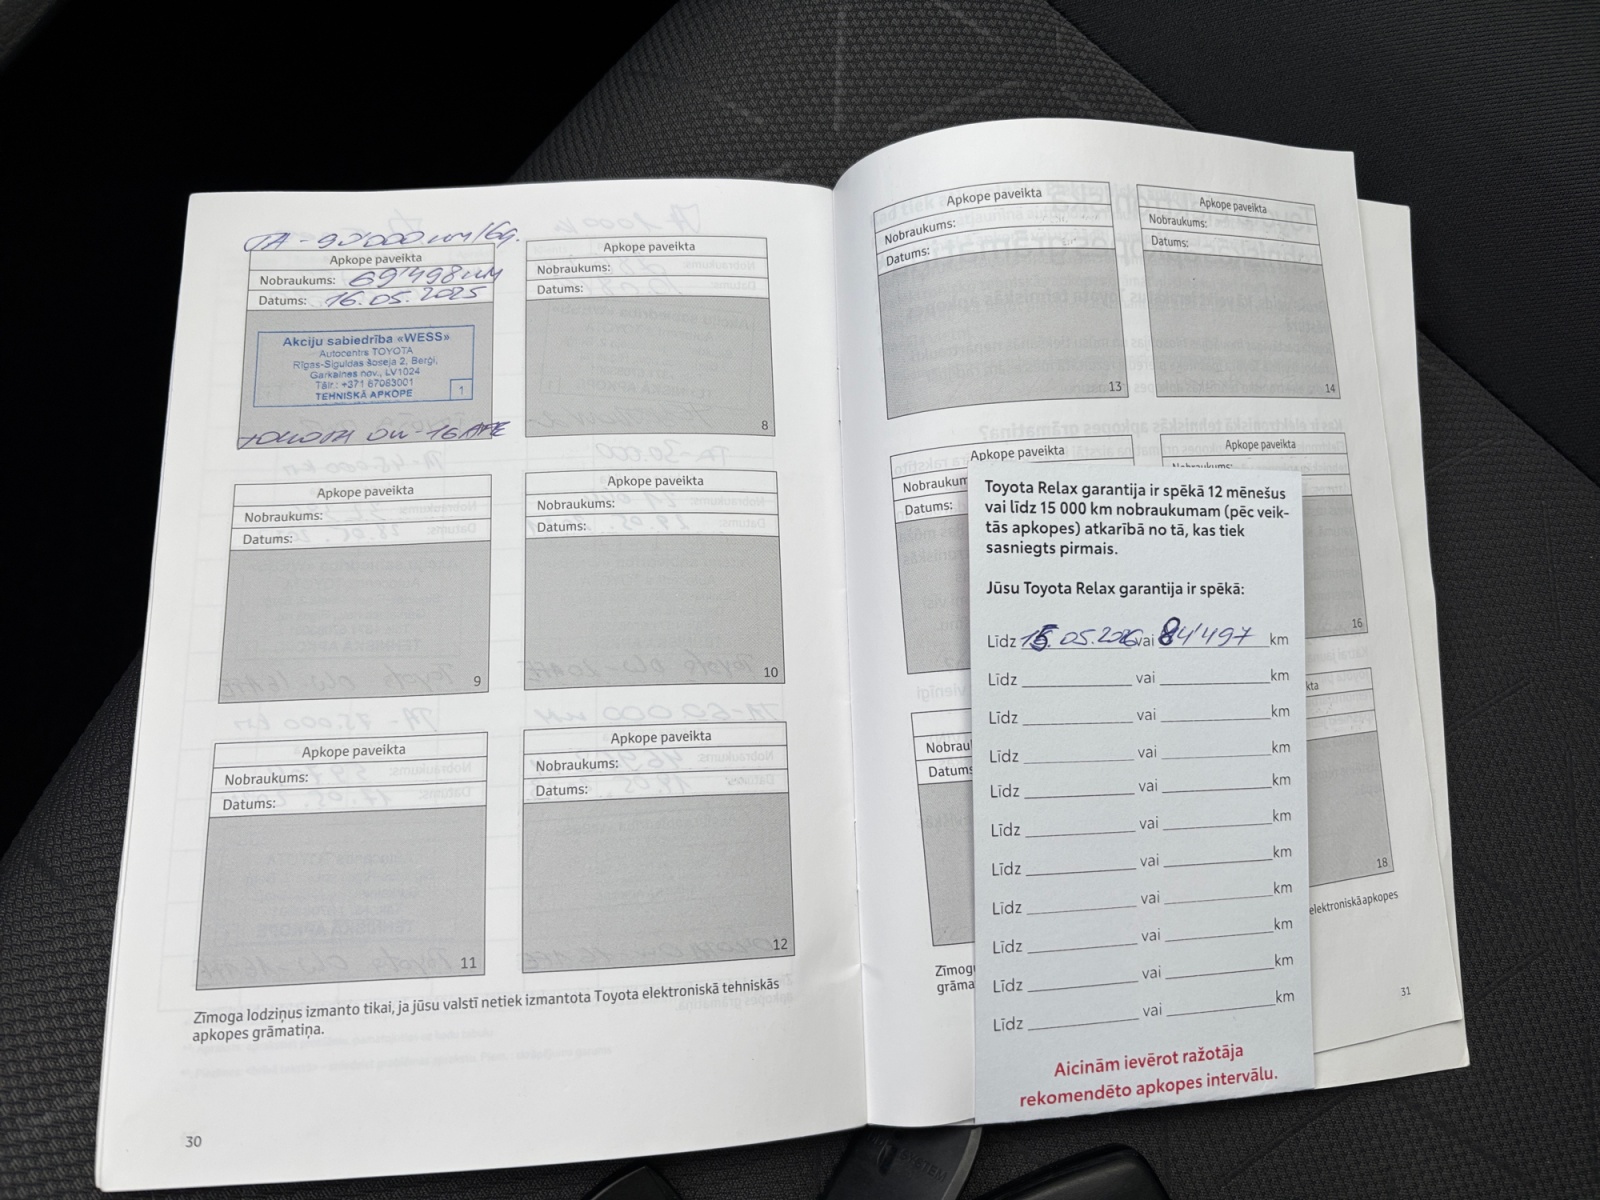 TA - 90'000 км/6g.
Apkope paveikta
Nobraukums: 69'498 км
Datums: 16.05.2025
Akciju sabiedrība «WESS»
Autocentrs TOYOTA
Rīgas-Siguldas šoseja 2, Berģi,
Garkalnes nov., LV1024
Tālr.: +371 67063001
TEHNISKĀ APKOPE
1
Apkope paveikta
Nobraukums:
Datums:
8
Apkope paveikta
Nobraukums:
Datums:
9
Apkope paveikta
Nobraukums:
Datums:
10
Apkope paveikta
Nobraukums:
Datums:
11
Apkope paveikta
Nobraukums:
Datums:
12
Zīmoga lodziņus izmanto tikai, ja jūsu valstī netiek izmantota Toyota elektroniskā tehniskās
apkopes grāmatiņa.
30
Apkope paveikta
Nobraukums:
Datums:
13
Apkope paveikta
Nobraukums:
Datums:
14
Apkope paveikta
Datums:
Apkope paveikta
16
Datums
18
elektroniskā apkopes
31
Toyota Relax garantija ir spēkā 12 mēnešus
vai līdz 15 000 km nobraukumam (pēc veik-
tās apkopes) atkarībā no tā, kas tiek
sasniegts pirmais.
Jūsu Toyota Relax garantija ir spēkā:
Līdz 15.05.2026 vai 84'497 km
Līdz vai km
Līdz vai km
Līdz vai km
Līdz vai km
Līdz vai km
Līdz vai km
Līdz vai km
Līdz vai km
Līdz vai km
Līdz vai km
Aicinām ievērot ražotāja
rekomendēto apkopes intervālu.